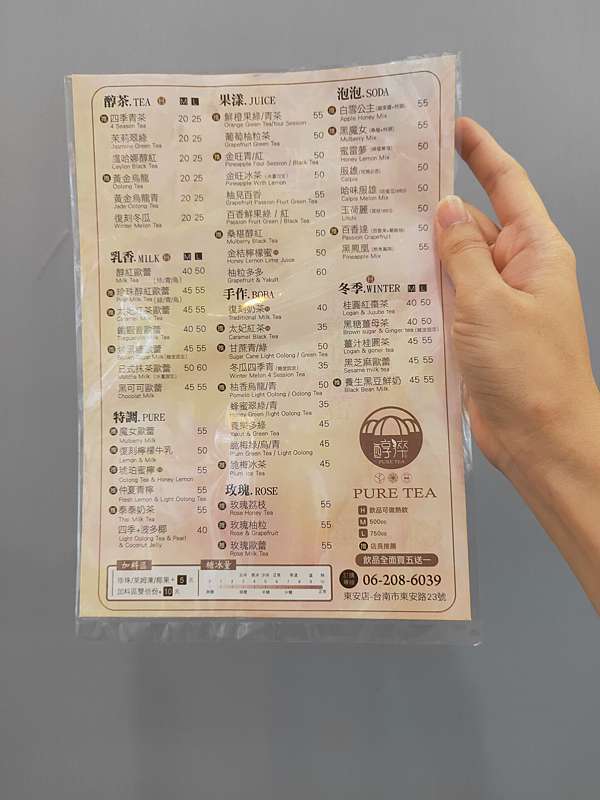 醇茶.TEA H M L
推 四季青茶 20 25
4 Season Tea
茉莉翠綠 20 25
Jasmine Green Tea
溫哈娜醇紅 20 25
Ceylon Black Tea
推 黃金烏龍 20 25
Oolong Tea
黃金烏龍青 20 25
Jade Oolong Tea
復刻冬瓜 20 25
Winter Melon Tea
乳香.MILK H M L
醇紅歐蕾 40 50
Milk Tea
推 珍珠醇紅歐蕾 45 55
推 太妃紅歐蕾 45 55
Caramel Milk Tea
鐵觀音歐蕾 40 50
45 55
日式抹茶歐蕾 50 60
Matcha Milk
黑可可歐蕾 45 55
Chocolat Milk
特調.PURE
推 魔女歐蕾 55
Mulberry Milk
推 復刻檸檬牛乳 50
Lemon & Milk
推 琥珀蜜檸 55
Oolong Tea & Honey Lemon
推 仲夏青檸 55
Fresh Lemon & Light Oolong Tea
推 泰泰奶茶 55
Thai Milk Tea
四季+波多椰 40
Light Oolong Tea & Pearl
& Coconut Jelly
果漾.JUICE
推 鮮橙果綠/青茶 55
Orange Green Tea/four Session
葡萄柚粒茶 50
Grapefruit Green Tea
推 金旺青/紅 50
Pineapple Four Session / Black Tea
推 金旺冰茶 50
Pineapple With Lemon
柚見百香 50
Grapefruit Passion Fruit Green Tea
百香鮮果綠 / 紅 50
Passion Fruit Green / Black Tea
推 桑椹醇紅 50
Mulberry Black Tea
金桔檸檬蜜 50
Honey Lemon Lime Juice
柚粒多多 60
Grapefruit & Yakult
手作.BOBA
復刻奶茶 40
Traditional Milk Tea
推 太妃紅茶 35
Caramel Black Tea
推 甘蔗青/綠 50
Sugar Cane Light Oolong / Green Tea
冬瓜四季青 35
Winter Melon 4 Session Tea
推 柚香烏龍/青 50
Pomelo Light Oolong / Oolong Tea
蜂蜜翠綠/青 35
Honey Green /light Oolong Tea
養樂多綠 45
Yakult & Green Tea
脆梅綠/烏/青 45
Plum Green Tea / Light Oolong
推 脆梅冰茶 45
Plum Ice Tea
玫瑰.ROSE
推 玫瑰荔枝 55
Rose Honey Tea
推 玫瑰柚粒 55
Rose & Grapefruit
推 玫瑰歐蕾 55
Rose Milk Tea
泡泡.SODA
推 白雪公主 55
Apple Honey Mix
推 黑魔女 55
Mulberry Mix
蜜雷夢 50
Honey Lemon Mix
服雄 50
Calpis
哈味服雄 50
Calpis Melon Mix
玉荷麗 50
推 百香達 50
Passion Grapefruit
黑鳳凰 55
Pineapple Mix
冬季.WINTER H M L
桂圓紅棗茶 40 50
Logan & Jujube tea
黑糖薑母茶 40 50
Brown sugar & Ginger tea
薑汁桂圓茶 45 55
Logan & goner tea
黑芝麻歐蕾 45 55
Sesame milk tea
推 養生黑豆鮮奶 45 55
Black Bean Milk
醇粹
PURE TEA
PURE TEA
H 飲品可做熱飲
M 500cc
L 750cc
推 店長推薦
飲品全面買五送一
訂購專線 06-208-6039
東安店-台南市東安路23號
加料區
珍珠/茉姆凍/椰果+ 5 元
加料區雙倍份+ 10 元
糖冰量